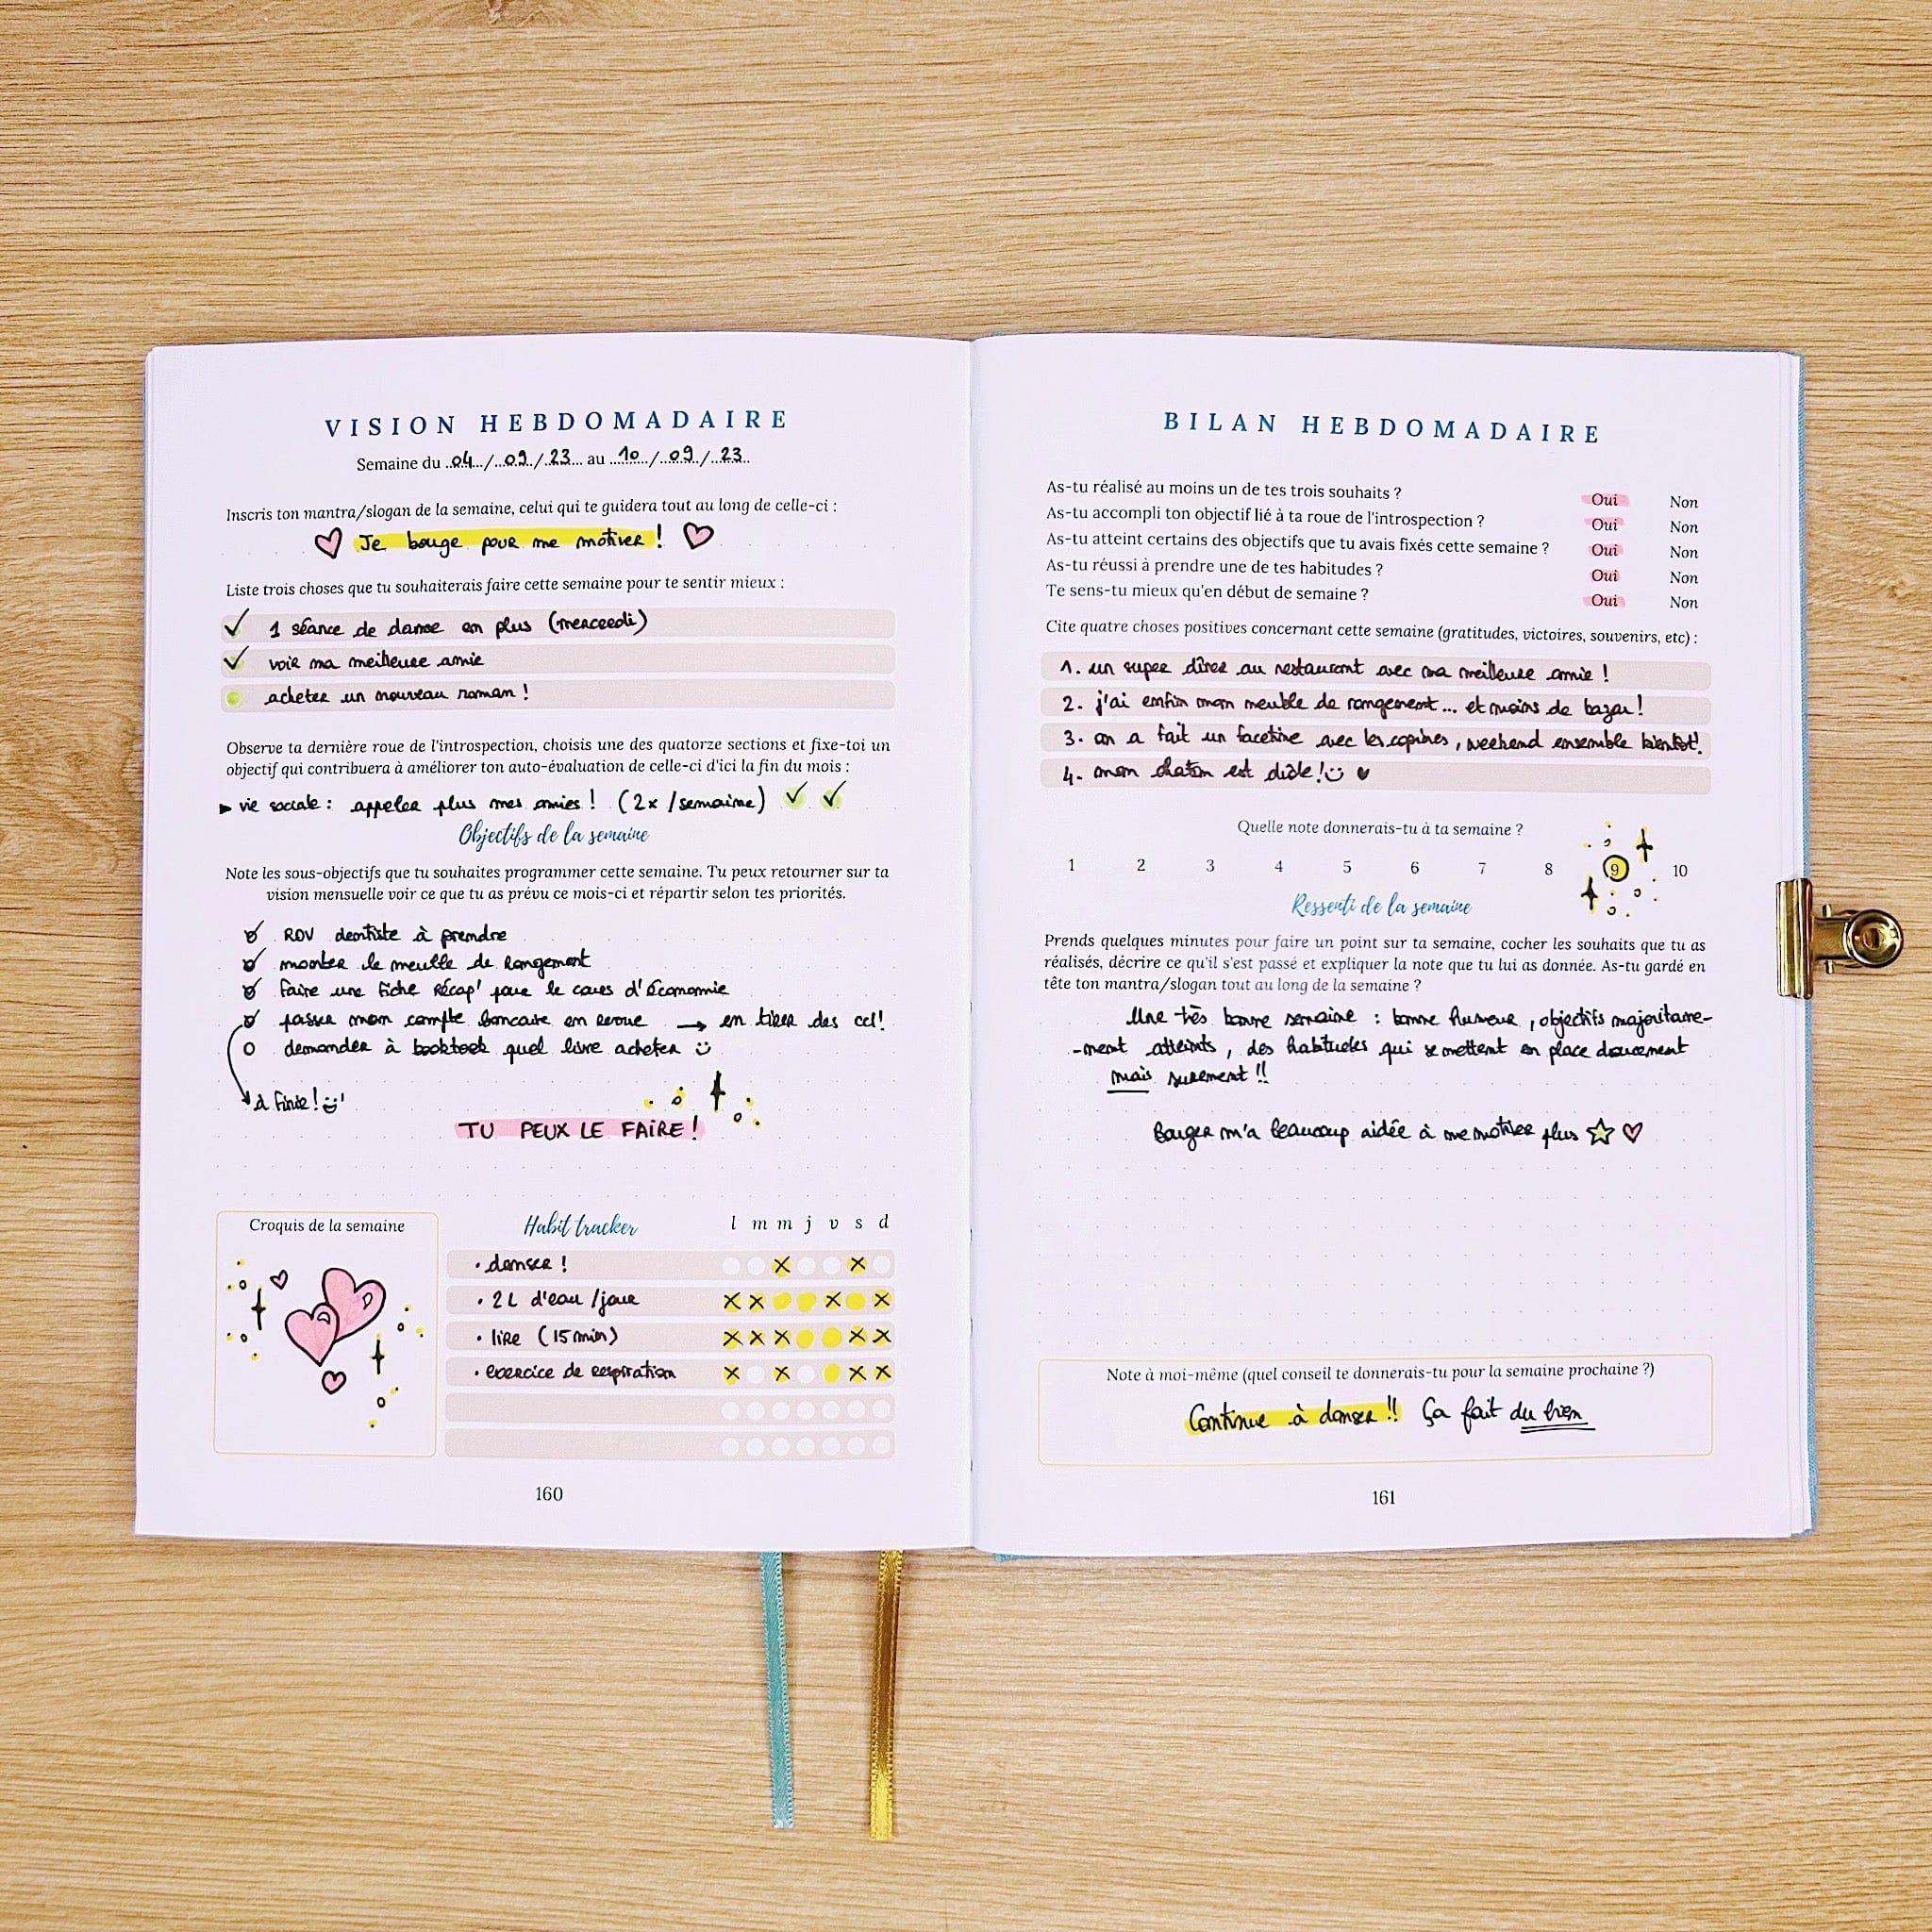 VISION HEBDOMADAIRE
Semaine du 04/09/23 au 10/09/23
Inscris ton mantra/slogan de la semaine, celui qui te guidera tout au long de celle-ci :
Je bouge pour me motiver !
Liste trois choses que tu souhaiterais faire cette semaine pour te sentir mieux :
1 séance de danse en plus (mercredi)
voir ma meilleure amie
acheter un nouveau roman !
Observe ta dernière roue de l'introspection, choisis une des quatorze sections et fixe-toi un
objectif qui contribuera à améliorer ton auto-évaluation de celle-ci d'ici la fin du mois :
► vie sociale : appeler plus mes amies ! (2x /semaine)
Objectifs de la semaine
Note les sous-objectifs que tu souhaites programmer cette semaine. Tu peux retourner sur ta
vision mensuelle voir ce que tu as prévu ce mois-ci et répartir selon tes priorités.
RDV dentiste à prendre
monter le meuble de rangement
faire une fiche récap' pour le cours d'économie
passer mon compte bancaire en revue → en tirer des ccl!
demander à booktook quel livre acheter
à finir !
TU PEUX LE FAIRE !
Croquis de la semaine
Habit tracker l m m j v s d
• danser !
• 2L d'eau /jour
• lire (15min)
• exercice de respiration
160
BILAN HEBDOMADAIRE
As-tu réalisé au moins un de tes trois souhaits ? Oui Non
As-tu accompli ton objectif lié à ta roue de l'introspection ? Oui Non
As-tu atteint certains des objectifs que tu avais fixés cette semaine ? Oui Non
As-tu réussi à prendre une de tes habitudes ? Oui Non
Te sens-tu mieux qu'en début de semaine ? Oui Non
Cite quatre choses positives concernant cette semaine (gratitudes, victoires, souvenirs, etc) :
1. un super dîner au restaurant avec ma meilleure amie !
2. j'ai enfin mon meuble de rangement... et moins de bazar !
3. on a fait un facetime avec les copines, weekend ensemble bientôt!
4. mon chaton est drôle !
Quelle note donnerais-tu à ta semaine ?
1 2 3 4 5 6 7 8 9 10
Ressenti de la semaine
Prends quelques minutes pour faire un point sur ta semaine, cocher les souhaits que tu as
réalisés, décrire ce qu'il s'est passé et expliquer la note que tu lui as donnée. As-tu gardé en
tête ton mantra/slogan tout au long de la semaine ?
Une très bonne semaine : bonne humeur, objectifs majoritaire-
-ment atteints, des habitudes qui se mettent en place doucement
mais surement !!
Bouger m'a beaucoup aidée à me motiver plus
Note à moi-même (quel conseil te donnerais-tu pour la semaine prochaine ?)
Continue à danser !! Ça fait du bien
161